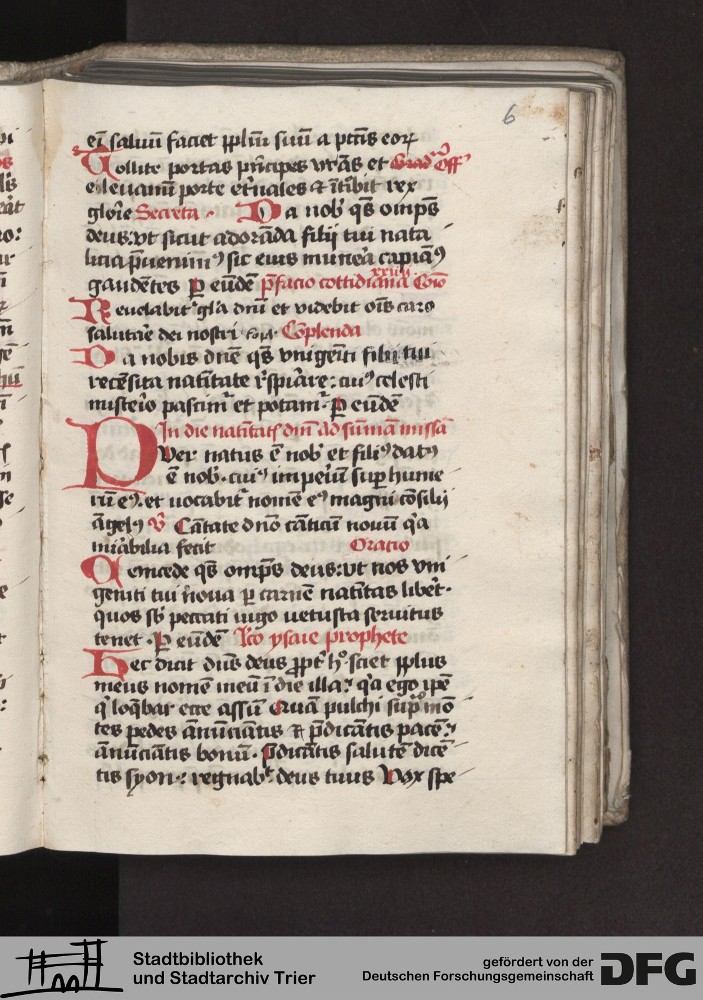 6
eī saluū faciet pplm̄ suū a pctīs eorꝝ
Tollite portas prīcipes vrās et Grad' Off'
eleuamī porte et'nales & ītibit rex
glorie Secreta Da nob' qs omps
deus: vt sicut adorāda filij tui nata
licia p̄uenim⁹ sic eius munera capiam⁹
gaudentes ꝑ eūdē p̄facio cottidiana Cōio
Reuelabit' gl'a dnī et videbit oīs caro
salutare dei nostri Cōplenda
Da nobis dnē qs vnigeniti filij tui
recēsita natītate r'spirare: cui⁹ celesti
misterio pascim' et potam'. ꝑ eūdē
In die natītatꝭ dnī ad sūmā missā
Puer natus ē nob' et fili⁹ dat⁹
ē nob'. cui⁹ imperiū sup hume
rū e⁹. et uocabit' nomē e⁹ magni cōsilij
āgel⁹ V̄ Cātate dno cāticū nouū q'a
mirabilia fecit Oratio
Concede qs omps deus: vt nos vni
geniti tui noua ꝑ carnē natītas liberet.
quos sb' peccati iugo uetusta seruitus
tenet. ꝑ eūdē Lc̄o ysaie prophete
Hec dicit dns deus ꝓpt' h°. sciet pplus
meus nomē meū ī die illa: q'a ego ipē
q' loq̄bar ecce assū Quā pulchi sup mō
tes pedes ānūciātis & p̄dicātis pacē:
ānūciātis bonū. p̄dicātis salutē dicē
tis syon: regnab't deus tuus Vox spe
Stadtbibliothek
und Stadtarchiv Trier
gefördert von der
Deutschen Forschungsgemeinschaft
DFG